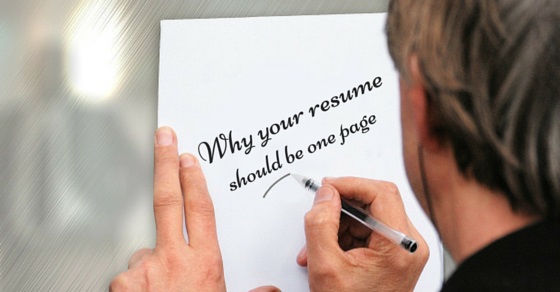 Why your resume
should be one page